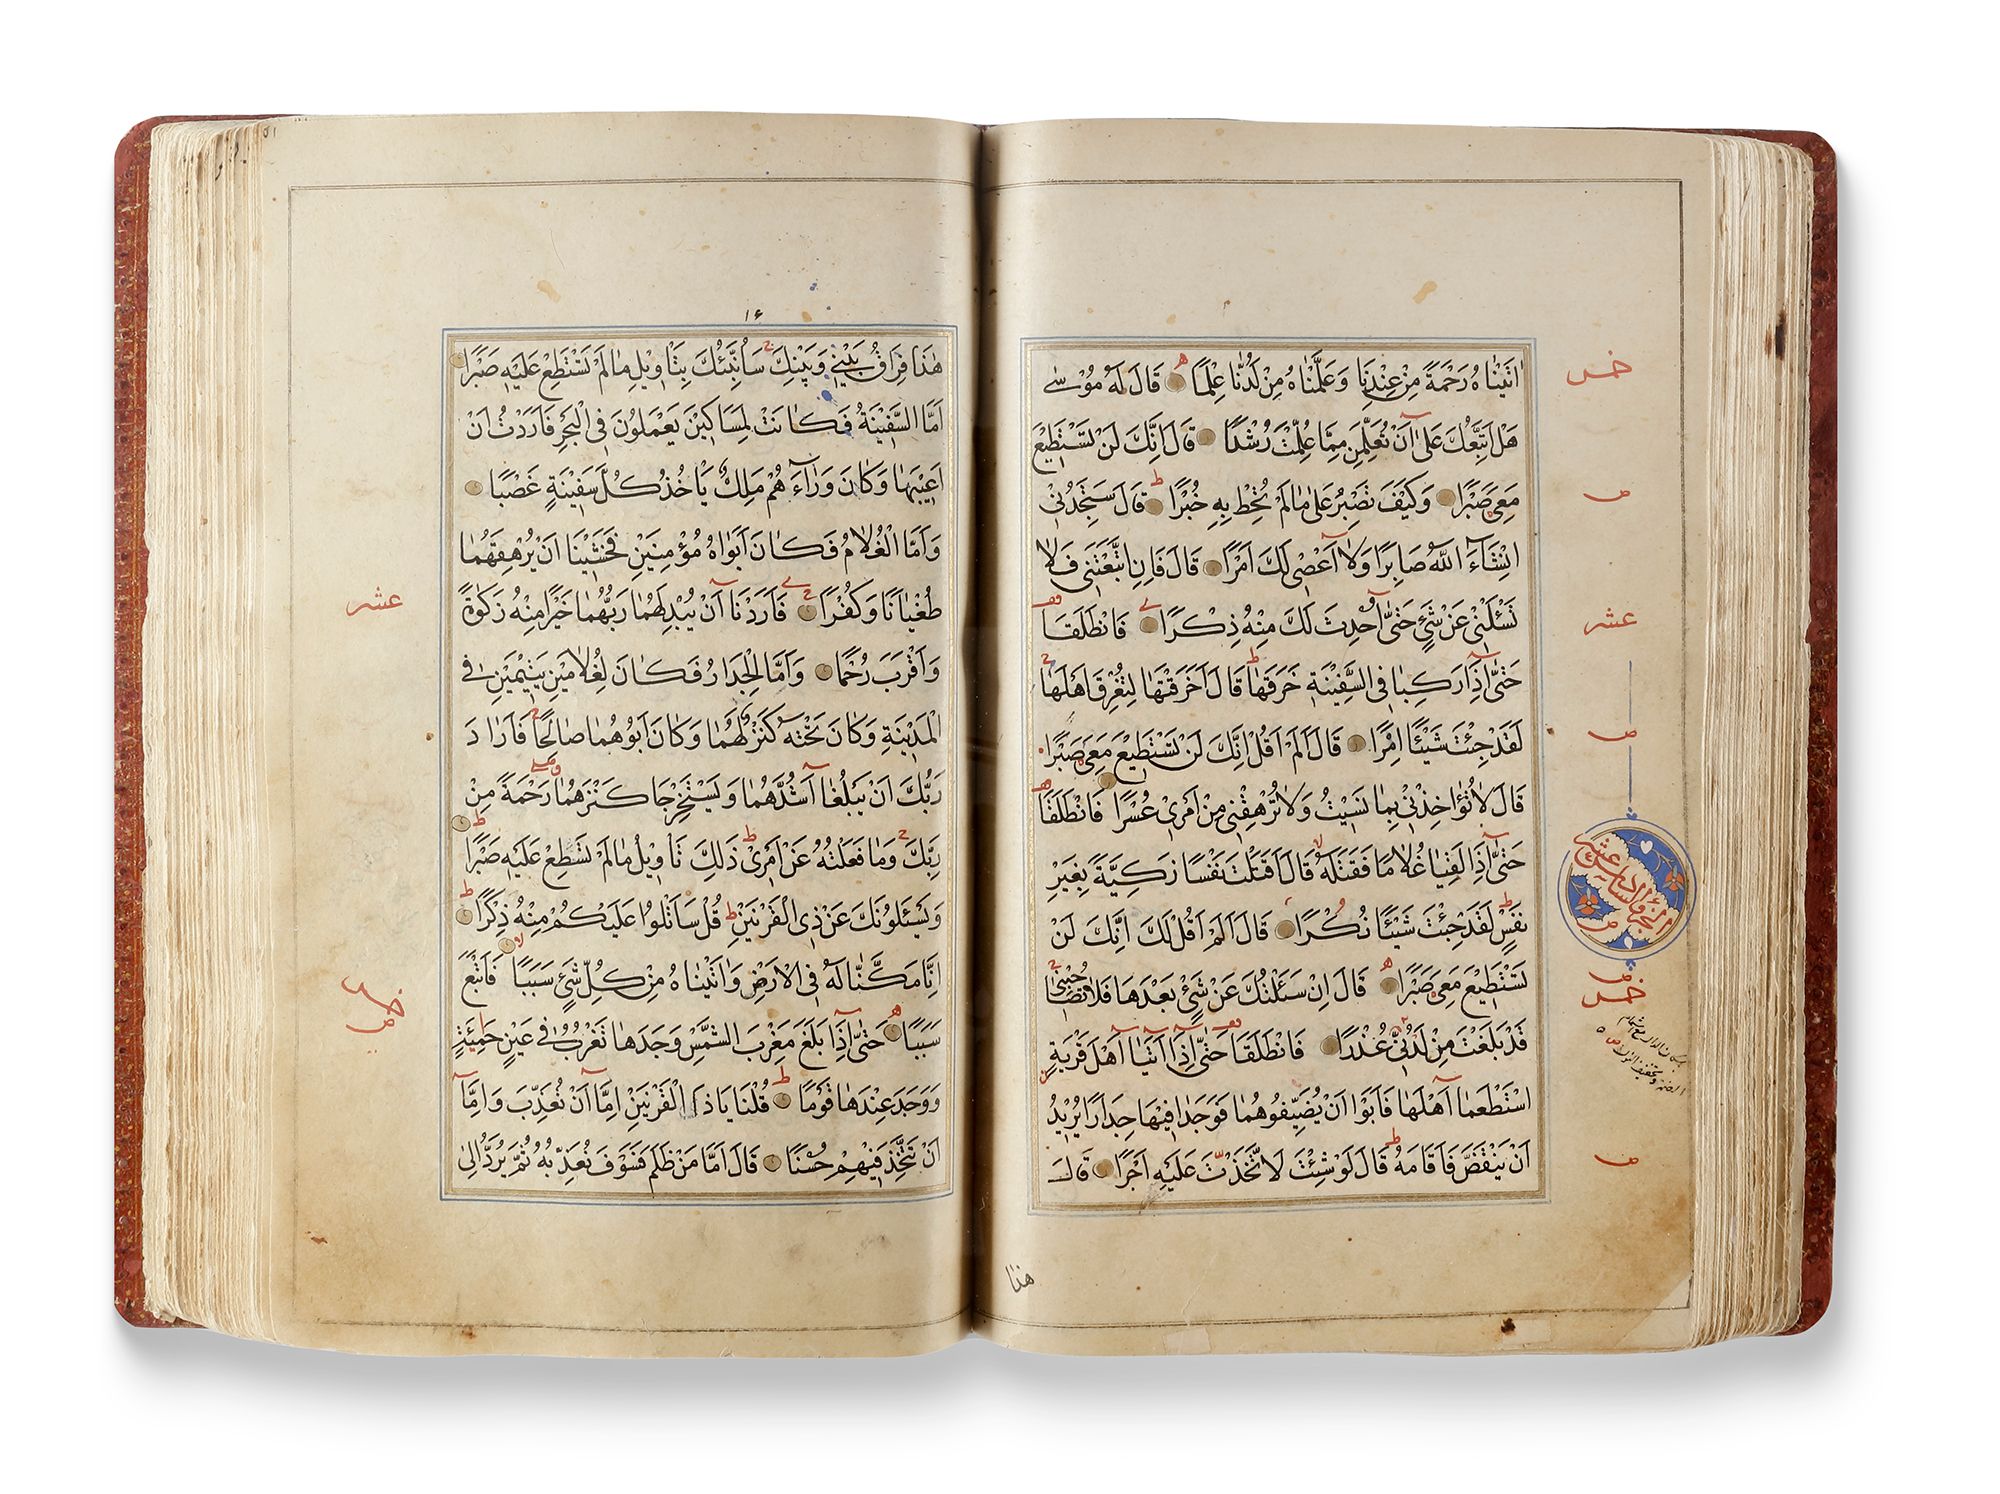 اتَيْنَاهُ رَحْمَةً مِنْ عِنْدِنَا وَعَلَّمْنَاهُ مِنْ لَدُنَّا عِلْمًا قَالَ لَهُ مُوْسٰى
هَلْ اَتَّبِعُكَ عَلٰى اَنْ تُعَلِّمَنِ مِمَّا عُلِّمْتَ رُشْدًا قَالَ اِنَّكَ لَنْ تَسْتَطِيْعَ
مَعِيَ صَبْرًا وَكَيْفَ تَصْبِرُ عَلٰى مَالَمْ تُحِطْ بِهِ خُبْرًا قَالَ سَتَجِدُنِيْ
اِنْشَاءَ اللّٰهُ صَابِرًا وَلَا اَعْصِيْ لَكَ اَمْرًا قَالَ فَاِنِ اتَّبَعْتَنِيْ فَلَا
تَسْئَلْنِيْ عَنْ شَيْءٍ حَتّٰى اُحْدِثَ لَكَ مِنْهُ ذِكْرًا فَانْطَلَقَا
حَتّٰى اِذَا رَكِبَا فِي السَّفِيْنَةِ خَرَقَهَا قَالَ اَخَرَقْتَهَا لِتُغْرِقَ اَهْلَهَا
لَقَدْ جِئْتَ شَيْئًا اِمْرًا قَالَ اَلَمْ اَقُلْ اِنَّكَ لَنْ تَسْتَطِيْعَ مَعِيَ صَبْرًا
قَالَ لَا تُؤَاخِذْنِيْ بِمَا نَسِيْتُ وَلَا تُرْهِقْنِيْ مِنْ اَمْرِيْ عُسْرًا فَانْطَلَقَا
حَتّٰى اِذَا لَقِيَا غُلَامًا فَقَتَلَهُ قَالَ اَقَتَلْتَ نَفْسًا زَكِيَّةً بِغَيْرِ
نَفْسٍ لَقَدْ جِئْتَ شَيْئًا نُكْرًا قَالَ اَلَمْ اَقُلْ لَكَ اِنَّكَ لَنْ
تَسْتَطِيْعَ مَعِيَ صَبْرًا قَالَ اِنْ سَئَلْتُكَ عَنْ شَيْءٍ بَعْدَهَا فَلَا تُصَاحِبْنِيْ
قَدْ بَلَغْتَ مِنْ لَدُنِّيْ عُذْرًا فَانْطَلَقَا حَتّٰى اِذَا اَتَيَا اَهْلَ قَرْيَةٍ
اسْتَطْعَمَا اَهْلَهَا فَاَبَوْا اَنْ يُضَيِّفُوْهُمَا فَوَجَدَا فِيْهَا جِدَارًا يُرِيْدُ
اَنْ يَنْقَضَّ فَاَقَامَهُ قَالَ لَوْ شِئْتَ لَاتَّخَذْتَ عَلَيْهِ اَجْرًا قَالَ
هذا
خمس
عشر
الجزؤ السادس عشر
خمس
١٤
هٰذَا فِرَاقُ بَيْنِيْ وَبَيْنِكَ سَاُنَبِّئُكَ بِتَاْوِيْلِ مَالَمْ تَسْتَطِعْ عَلَيْهِ صَبْرًا
اَمَّا السَّفِيْنَةُ فَكَانَتْ لِمَسَاكِيْنَ يَعْمَلُوْنَ فِي الْبَحْرِ فَاَرَدْتُ اَنْ
اَعِيْبَهَا وَكَانَ وَرَاءَهُمْ مَلِكٌ يَاْخُذُ كُلَّ سَفِيْنَةٍ غَصْبًا
وَاَمَّا الْغُلَامُ فَكَانَ اَبَوَاهُ مُؤْمِنَيْنِ فَخَشِيْنَا اَنْ يُرْهِقَهُمَا
طُغْيَانًا وَكُفْرًا فَاَرَدْنَا اَنْ يُبْدِلَهُمَا رَبُّهُمَا خَيْرًا مِنْهُ زَكٰوةً
وَاَقْرَبَ رُحْمًا وَاَمَّا الْجِدَارُ فَكَانَ لِغُلَامَيْنِ يَتِيْمَيْنِ فِي
الْمَدِيْنَةِ وَكَانَ تَحْتَهُ كَنْزٌ لَهُمَا وَكَانَ اَبُوْهُمَا صَالِحًا فَاَرَادَ
رَبُّكَ اَنْ يَبْلُغَا اَشُدَّهُمَا وَيَسْتَخْرِجَا كَنْزَهُمَا رَحْمَةً مِنْ
رَبِّكَ وَمَا فَعَلْتُهُ عَنْ اَمْرِيْ ذٰلِكَ تَاْوِيْلُ مَالَمْ تَسْطِعْ عَلَيْهِ صَبْرًا
وَيَسْئَلُوْنَكَ عَنْ ذِي الْقَرْنَيْنِ قُلْ سَاَتْلُوا عَلَيْكُمْ مِنْهُ ذِكْرًا
اِنَّا مَكَّنَّا لَهُ فِي الْاَرْضِ وَاٰتَيْنَاهُ مِنْ كُلِّ شَيْءٍ سَبَبًا فَاَتْبَعَ
سَبَبًا حَتّٰى اِذَا بَلَغَ مَغْرِبَ الشَّمْسِ وَجَدَهَا تَغْرُبُ فِيْ عَيْنٍ حَمِئَةٍ
وَوَجَدَ عِنْدَهَا قَوْمًا قُلْنَا يَاذَا الْقَرْنَيْنِ اِمَّا اَنْ تُعَذِّبَ وَاِمَّا
اَنْ تَتَّخِذَ فِيْهِمْ حُسْنًا قَالَ اَمَّا مَنْ ظَلَمَ فَسَوْفَ نُعَذِّبُهُ ثُمَّ يُرَدُّ اِلٰى
عشر
خمس